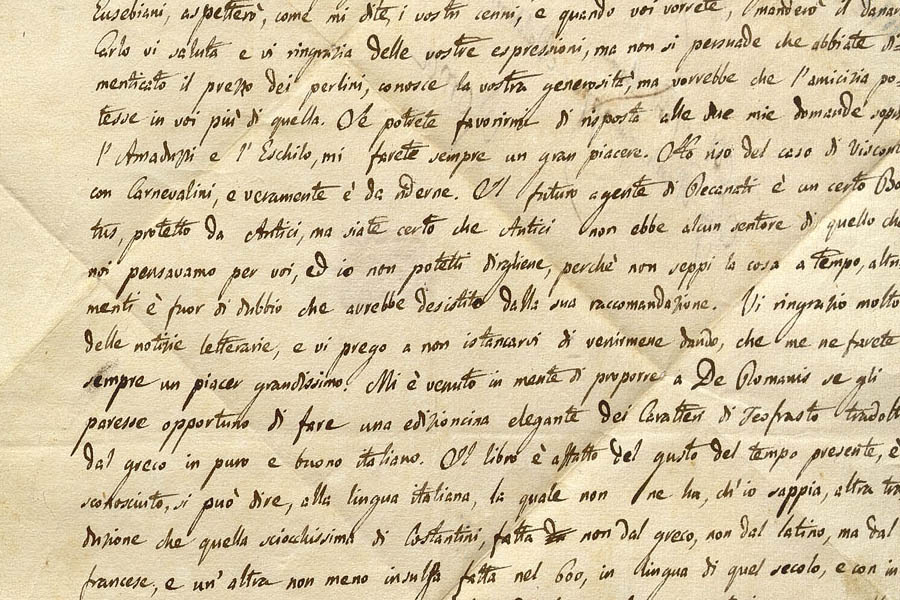 Eusebiani, aspetterò, come mi dite, i vostri cenni, e quando voi vorrete, manderò il danar
Carlo vi saluta e vi ringrazia delle vostre espressioni, ma non si persuade che abbiate di-
menticato il prezzo dei perlini, conosce la vostra generosità, ma vorrebbe che l'amicizia po-
tesse in voi più di quella. Se potrete favorirmi di risposta alle due mie domande sopr
l'Amaduzzi e l'Eschilo, mi farete sempre un gran piacere. Ho riso del caso di Viscont
con Carnevalini, e veramente è da riderne. Il futuro agente di Recanati è un certo Bo
tus, protetto da Antici, ma siate certo che Antici non ebbe alcun sentore di quello che
noi pensavamo per voi, ed io non potetti dirgliene, perchè non seppi la cosa a tempo, altri
menti è fuor di dubbio che avrebbe desistito dalla sua raccomandazione. Vi ringrazio molto
delle notizie letterarie, e vi prego a non istancarvi di venirmene dando, che me ne farete
sempre un piacer grandissimo. Mi è venuto in mente di proporre a De Romanis se gli
paresse opportuno di fare una edizioncina elegante dei Caratteri di Teofrasto tradott
dal greco in puro e buono italiano. Il libro è affatto del gusto del tempo presente, è
sconosciuto, si può dire, alla lingua italiana, la quale non ne ha, ch'io sappia, altra tra
duzione che quella sciocchissima di Costantini, fatta non dal greco, non dal latino, ma dal
francese, e un'altra non meno insulsa fatta nel 600, in lingua di quel secolo, e con in